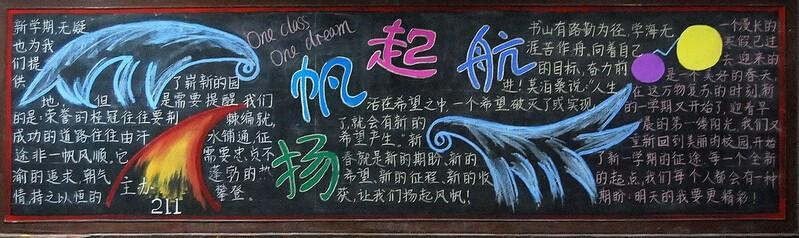 新学期,无疑
也为我
们提
供 了崭新的园
地,但 是需要提醒我们
的是:荣誉的桂冠往往要荆 棘编就,
成功的道路往往由汗 水铺通,征
途非一帆风顺,它 需要忠贞不
渝的追求,朝气 蓬勃的热
情,持之以恒的 攀登。
主办
211
One class
One dream
扬帆起航
书山有路勤为径,学海无
涯苦作舟。向着自己
的目标,奋力前
进!吴泊桑说:“人生
活在希望之中,一个希望破灭了或实现
了,就会有新的
希望产生。”新
春就是新的期盼、新的
希望、新的征程、新的收
获,让我们扬起风帆!
一个漫长的
寒假已过
去,迎来的
是一个美好的春天,
在这万物复苏的时刻,新
的一学期又开始了,迎着早
晨的第一缕阳光,我们又
重新回到美丽的校园,开始
了新一学期的征途。每一个全新
的起点,我们每个人都会有一种
期盼:明天的我要更精彩!